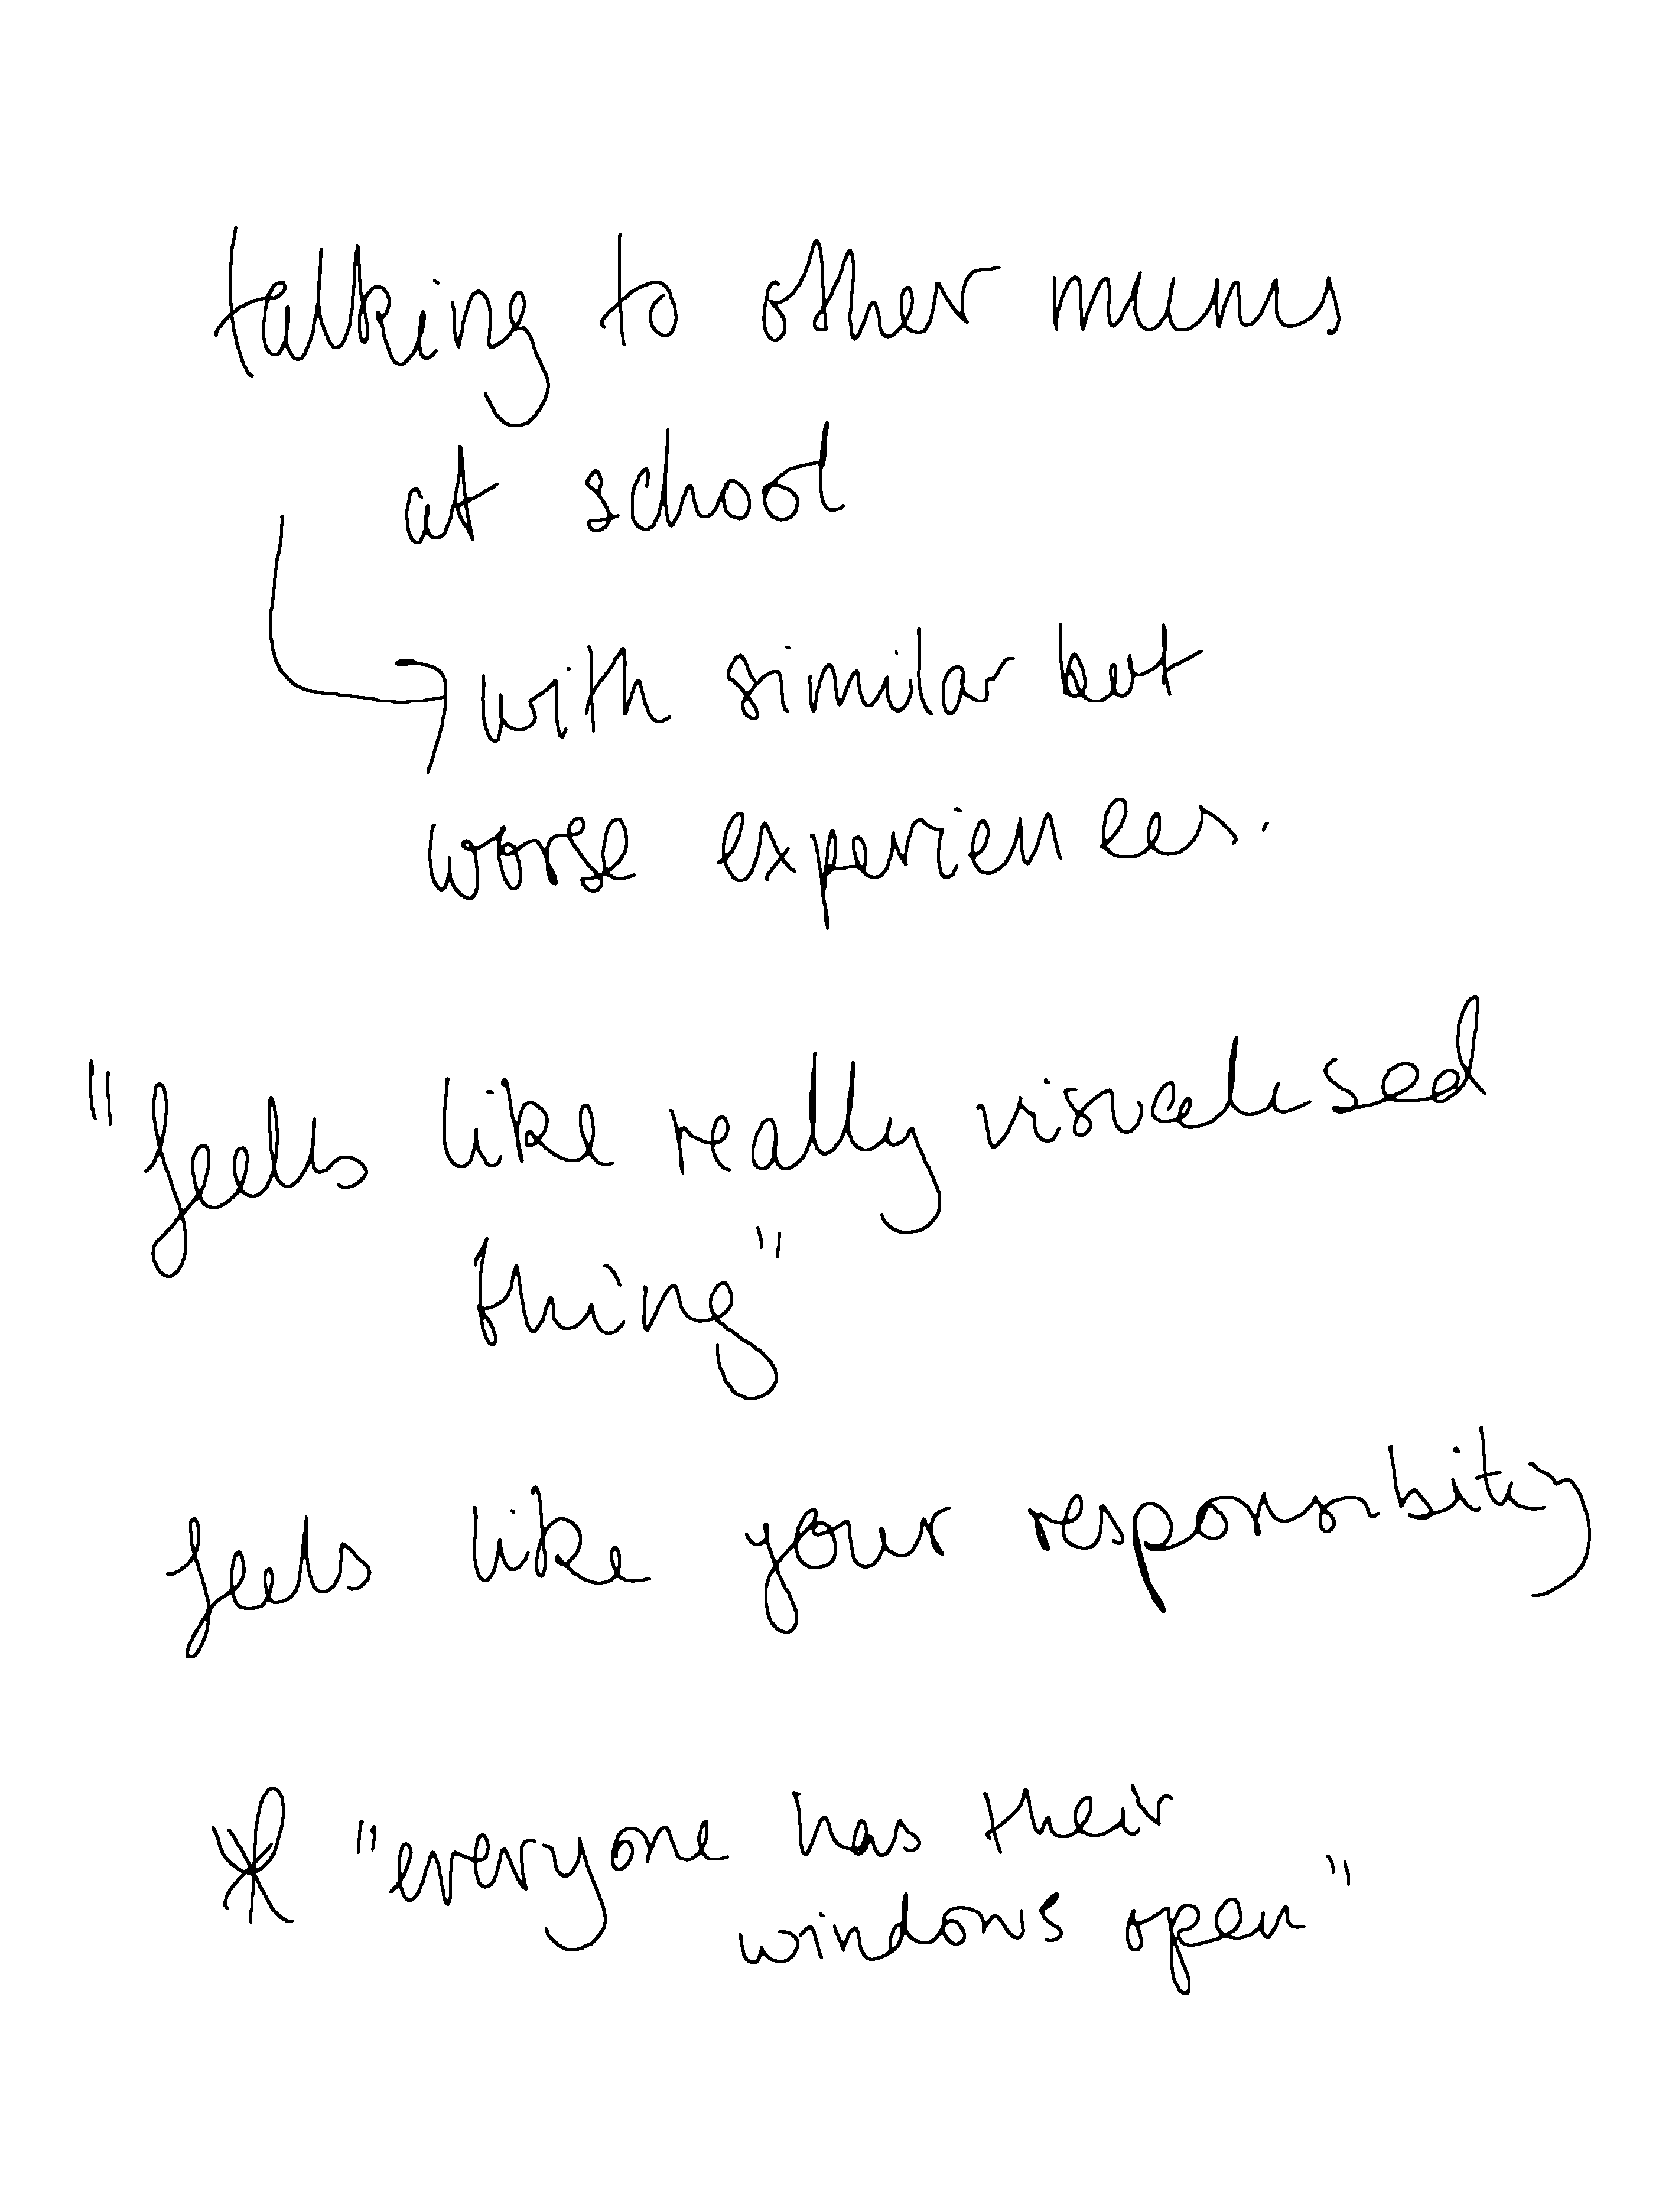 talking to other mums
at school
with similar but
worse experiences.
"feels like really visualised
thing"
feels like your responsibility
* "everyone has their
windows open"